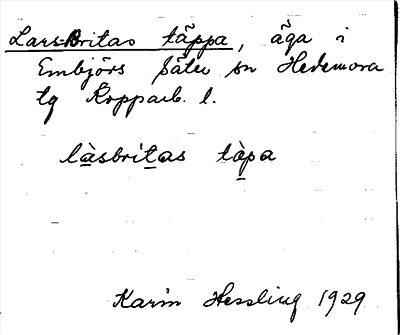 Lars-Britas täppa, äga i
Embjörs Säter sn Hedemora
tg Kopparb. l.
làsbritas tàpa
Karin Hessling 1929